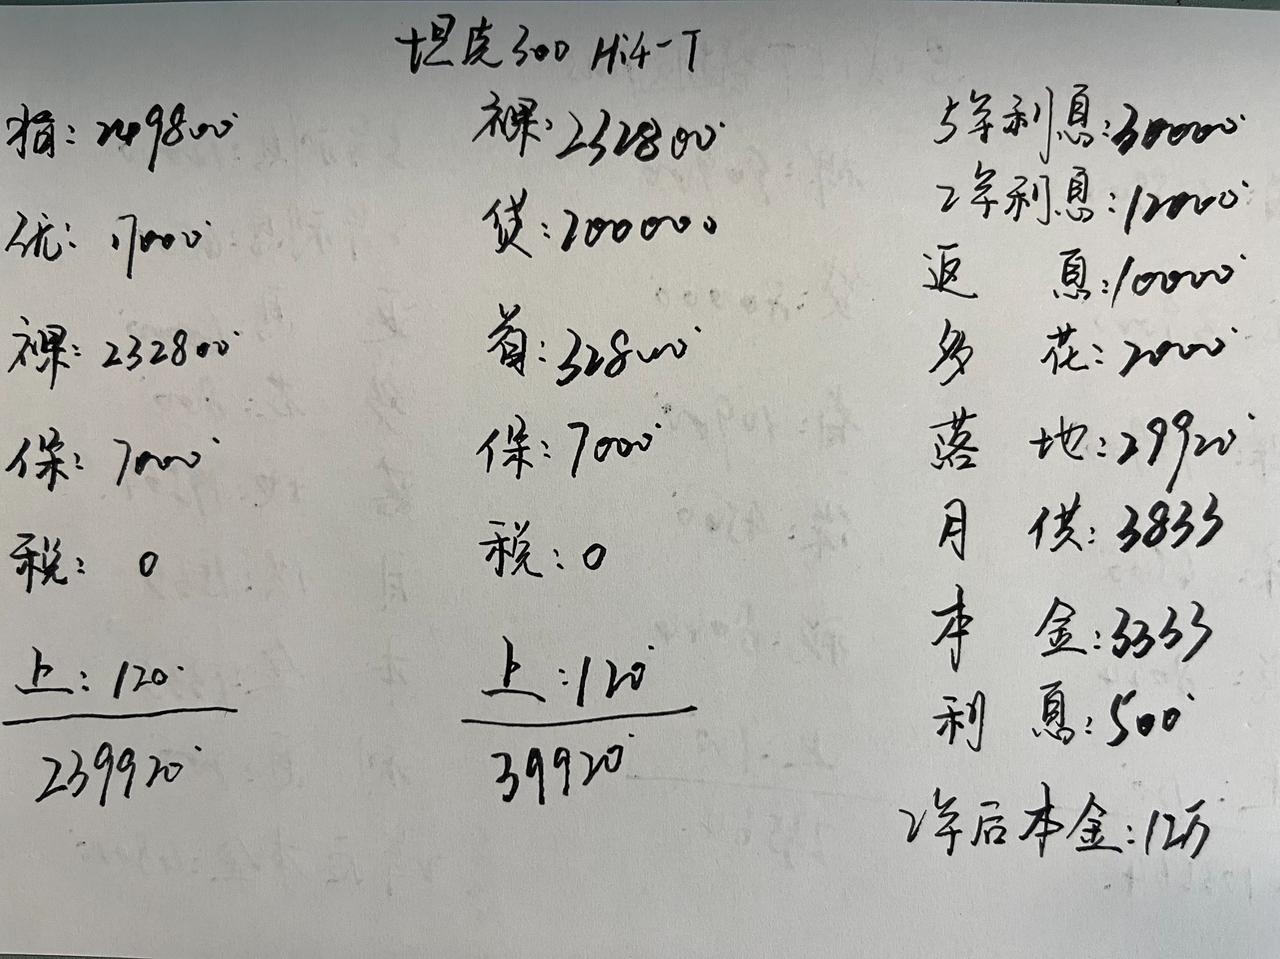 坦克300 Hi4-T
指: 249800
优: 17000
裸: 232800
保: 7000
税: 0
上: 120
239920
裸: 232800
贷: 200000
首: 32800
保: 7000
税: 0
上: 120
39920
5年利息: 30000
2年利息: 12000
返 息: 10000
多 花: 2000
落 地: 29920
月 供: 3833
本 金: 3333
利 息: 500
2年后本金: 12万